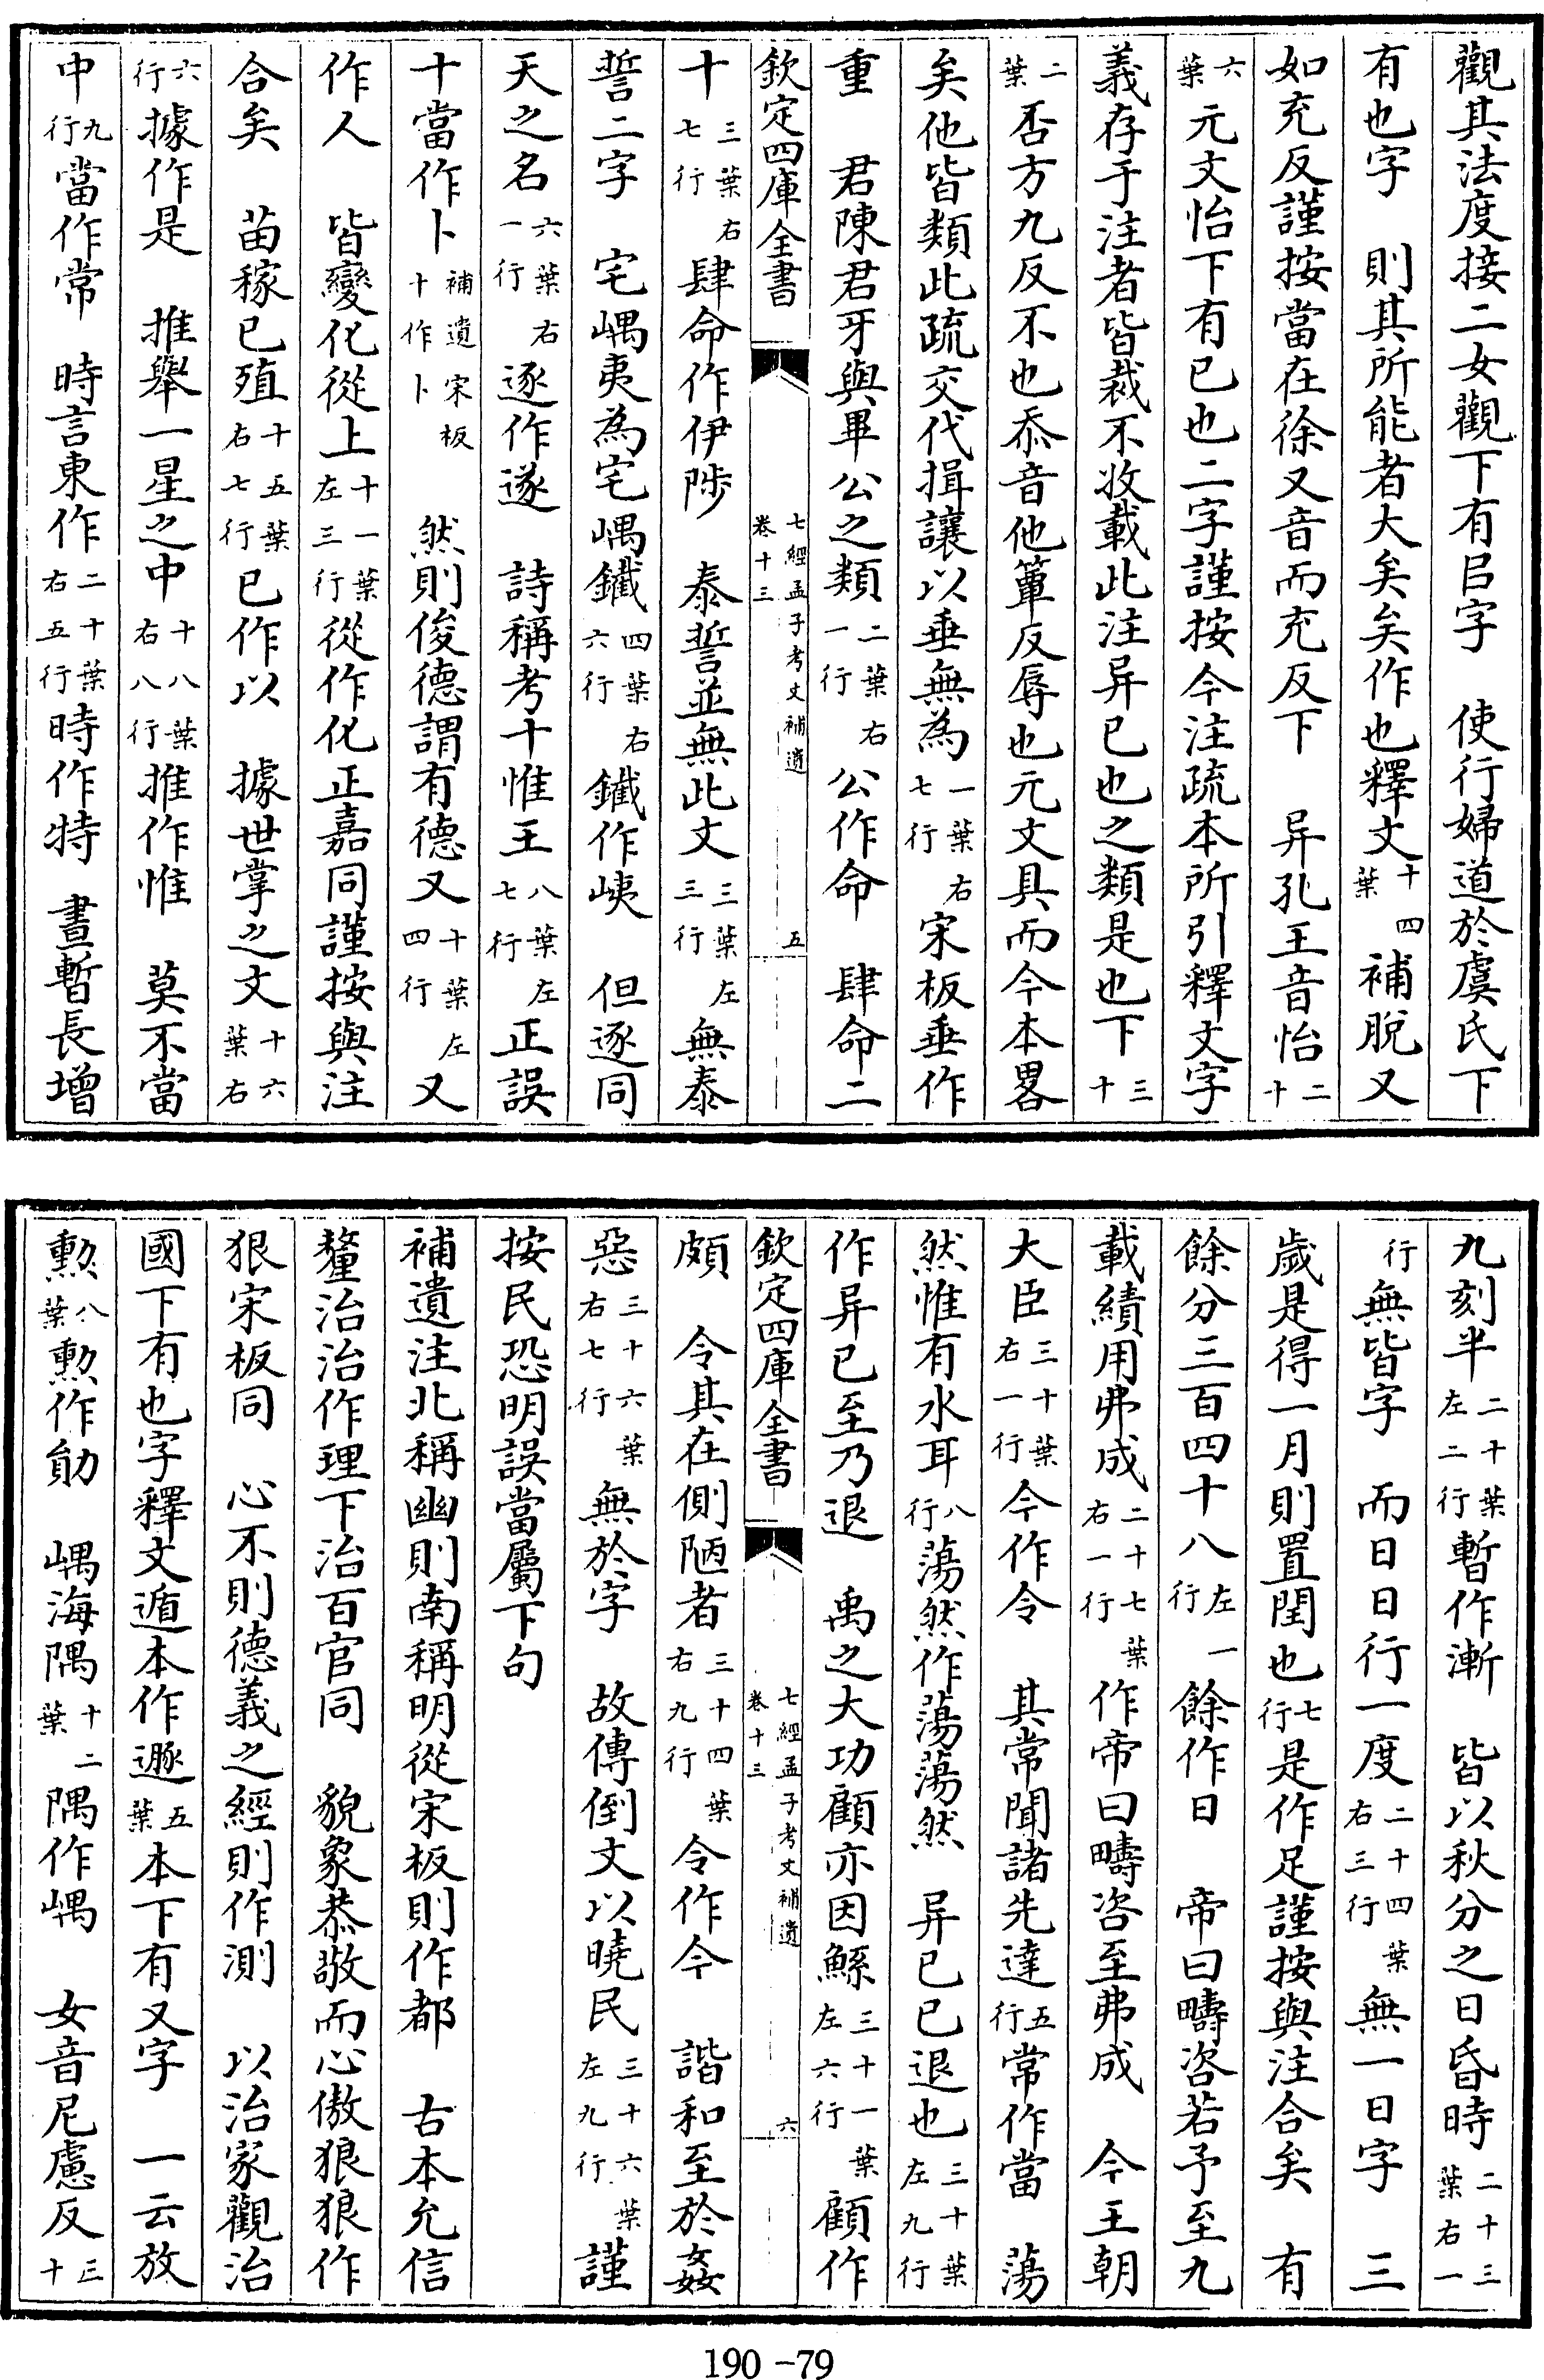 觀其法度接二女觀下有㠯字　使行婦道於虞氏下
有也字　則其所能者大矣矣作也釋文十四葉補脫又
如充反謹按當在徐又音而充反下　异孔王音怡二十
六葉元文怡下有已也二字謹按今注疏本所引釋文字
義存于注者皆裁不收載此注异已也之類是也下三十
二葉否方九反不也忝音他簟反辱也元文具而今本畧
矣他皆類此疏交代揖讓以垂無為一葉右七行宋板垂作
重　君陳君牙與畢公之類二葉右一行公作命　肆命二
欽定四庫全書　七經孟子考文補遺卷十三　五
十三葉右七行肆命作伊陟　泰誓並無此文三葉左三行無泰
誓二字　宅嵎夷為宅嵎鐵四葉右六行鐵作峓　但逐同
天之名六葉右一行逐作遂　詩稱考十惟王八葉左七行正誤
十當作卜補遺宋板十作卜　然則俊德謂有德又十葉左四行又
作人　皆變化從上十一葉左三行從作化正嘉同謹按與注
合矣　苗稼已殖十五葉右七行已作以　據世掌之文十六葉右
六行據作是　推舉一星之中十八葉右八行推作惟　莫不當
中九行當作常　時言東作二十葉右五行時作特　晝暫長增
九刻半二十葉左二行暫作漸　皆以秋分之日昏時二十三葉右一
行無皆字　而日日行一度二十四葉右三行無一日字　三
歲是得一月則置閏也七行是作足謹按與注合矣　有
餘分三百四十八左一行餘作日　帝曰疇咨若予至九
載績用弗成二十七葉右一行作帝曰疇咨至弗成　今王朝
大臣三十葉右一行今作令　其常聞諸先達五行常作當　蕩
然惟有水耳八行蕩然作蕩蕩然　异已已退也三十葉左九行
作异已至乃退　禹之大功顧亦因鯀三十一葉左六行顧作
欽定四庫全書　七經孟子考文補遺卷十三　六
頗　令其在側陋者三十四葉右九行令作今　諧和至於姦
惡三十六葉右七行無於字　故傳倒文以曉民三十六葉左九行謹
按民恐明誤當屬下句
補遺注北稱幽則南稱明從宋板則作都　古本允信
釐治治作理下治百官同　貌象恭敬而心傲狠狠作
狠宋板同　心不則德義之經則作測　以治家觀治
國下有也字釋文遁本作遯五葉本下有又字　一云放
勲八葉勲作勛　嵎海隅十二葉隅作嵎　女音尼慮反三十
190-79